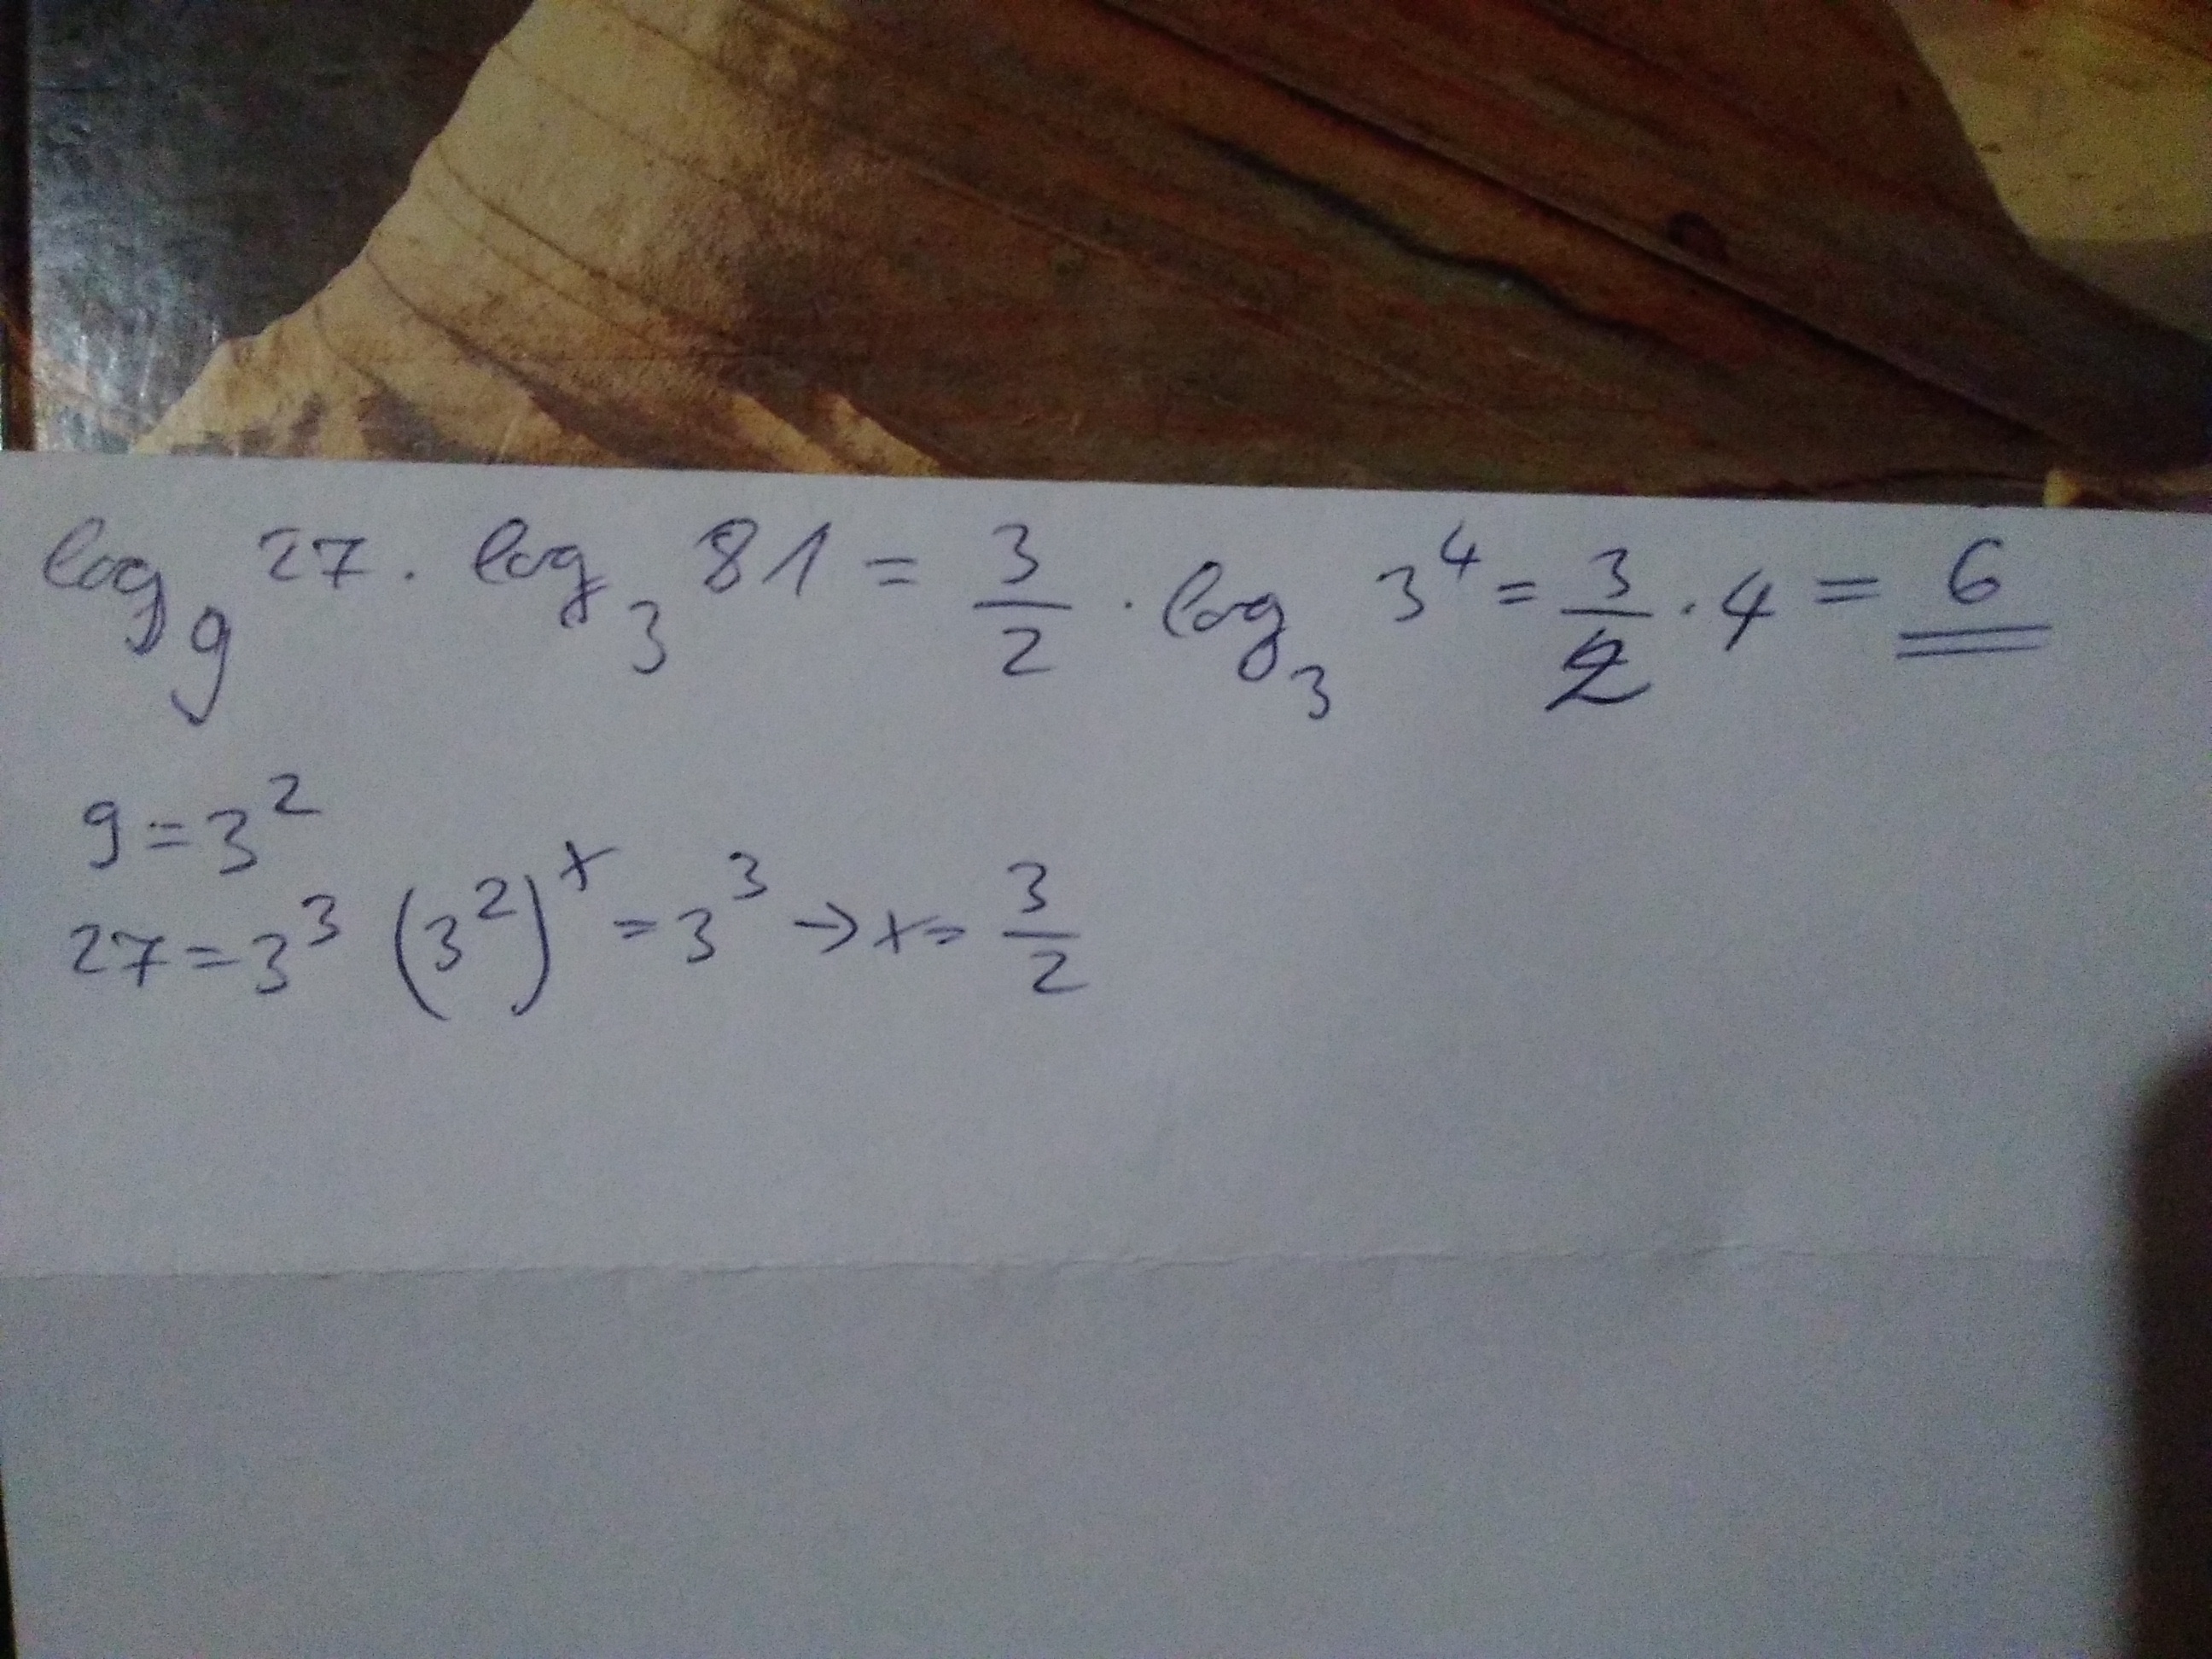 log₉ 27 · log₃ 81 = 3/2 · log₃ 3⁴ = 3/2 · 4 = 6
9 = 3²
27 = 3³ (3²)ˣ = 3³ → x = 3/2